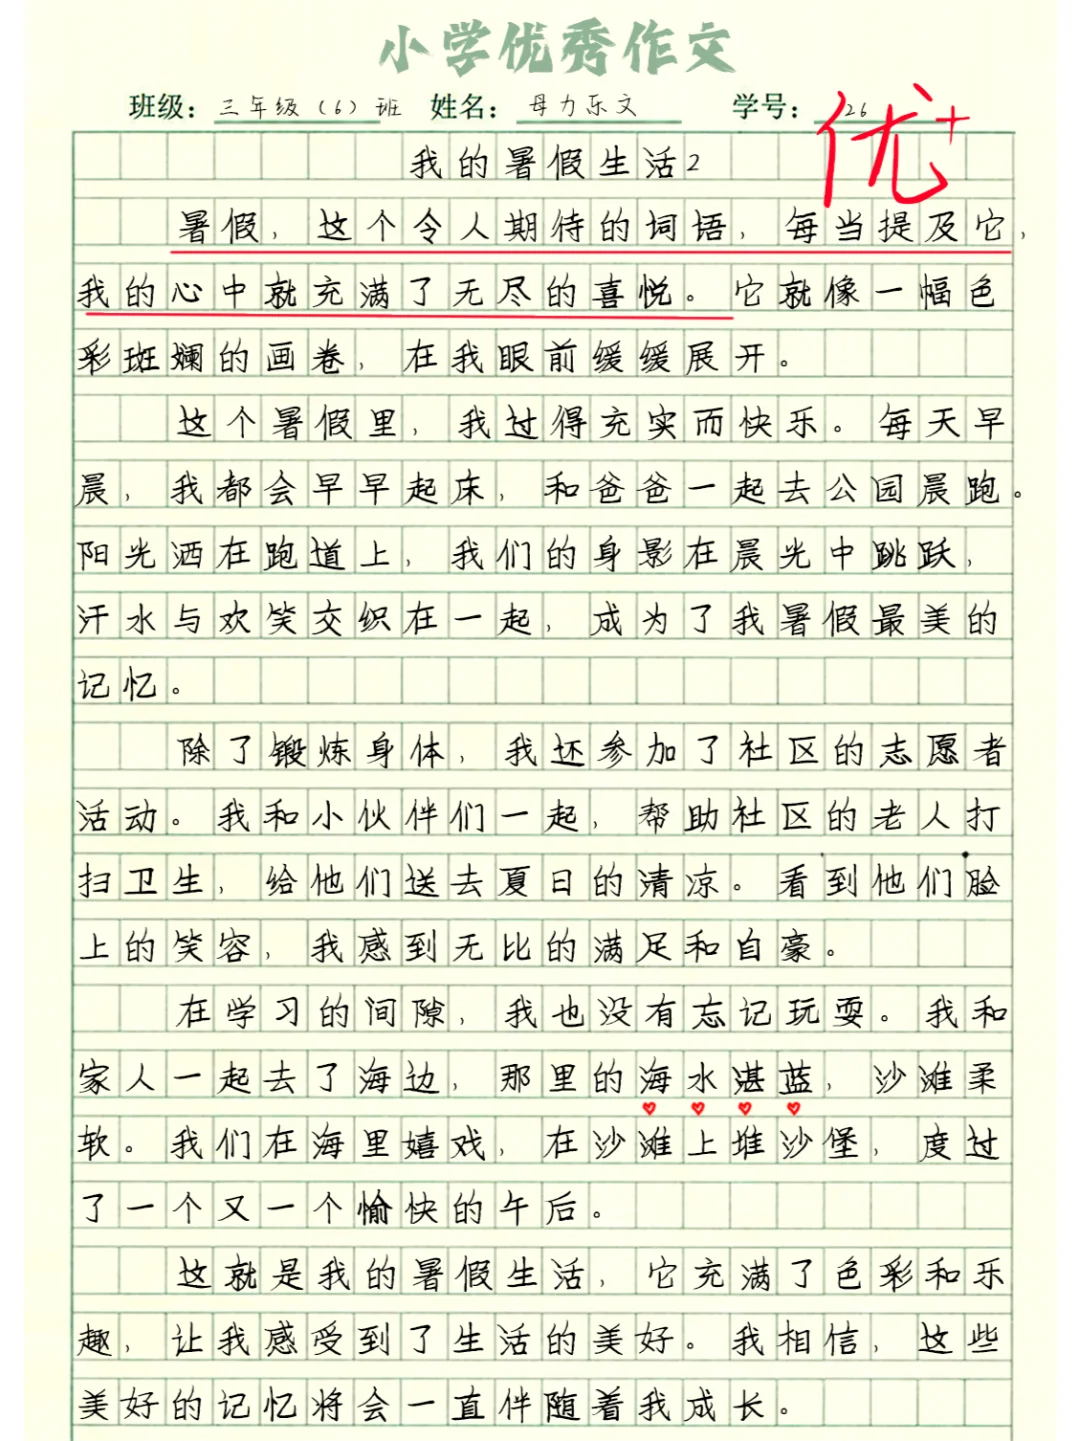 小学优秀作文
班级：三年级（6）班 姓名：母力东文 学号：26
优+
我的暑假生活2
暑假，这个令人期待的词语，每当提及它，
我的心中就充满了无尽的喜悦。它就像一幅色
彩斑斓的画卷，在我眼前缓缓展开。
这个暑假里，我过得充实而快乐。每天早
晨，我都会早早起床，和爸爸一起去公园晨跑。
阳光洒在跑道上，我们的身影在晨光中跳跃，
汗水与欢笑交织在一起，成为了我暑假最美的
记忆。
除了锻炼身体，我还参加了社区的志愿者
活动。我和小伙伴们一起，帮助社区的老人打
扫卫生，给他们送去夏日的清凉。看到他们脸
上的笑容，我感到无比的满足和自豪。
在学习的间隙，我也没有忘记玩耍。我和
家人一起去了海边，那里的海水湛蓝，沙滩柔
软。我们在海里嬉戏，在沙滩上堆沙堡，度过
了一个又一个愉快的午后。
这就是我的暑假生活，它充满了色彩和乐
趣，让我感受到了生活的美好。我相信，这些
美好的记忆将会一直伴随着我成长。